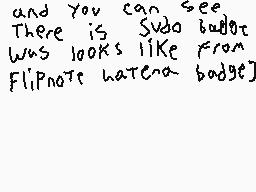 and you can see
There is Sudo badge
was looks like from
Flipnote hatena badge]